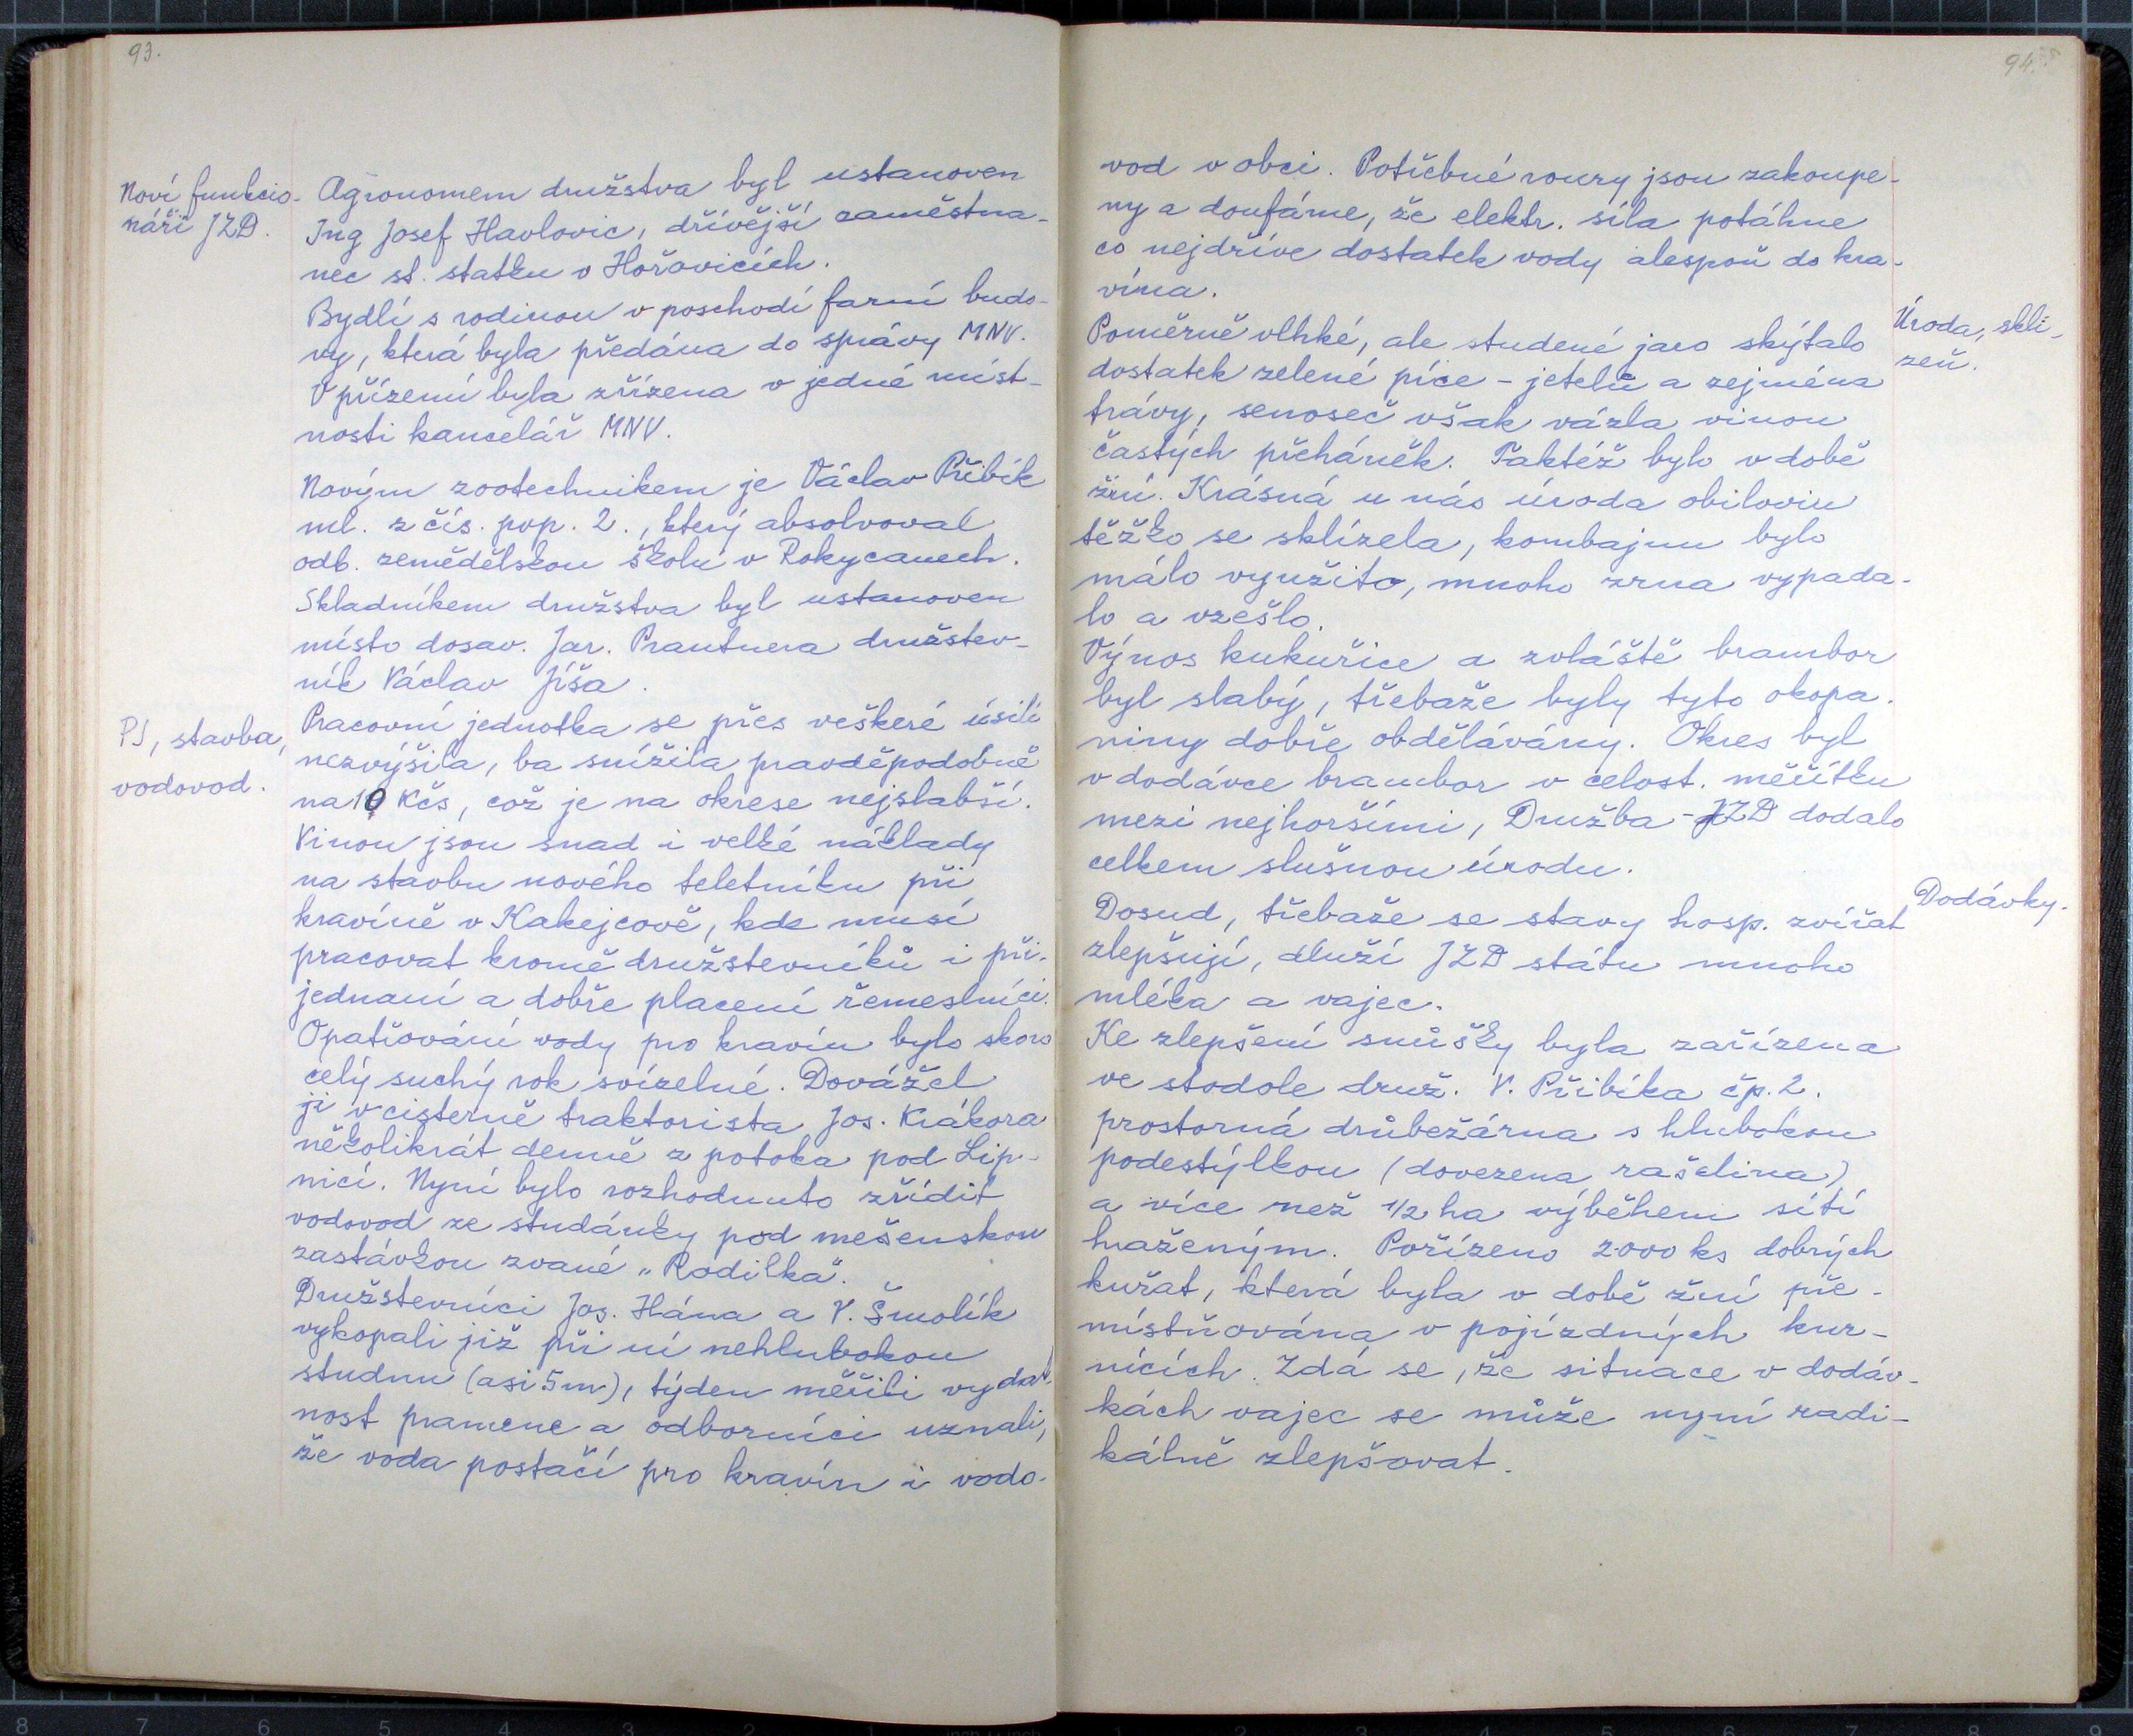 93.
Noví funkcio-
náři JZD.
Agronomem družstva byl ustanoven
Ing Josef Havlovic, dřívější zaměstna-
nec st. statku v Hořovicích.
Bydlí s rodinou v poschodí farní budo-
vy, která byla předána do správy MNV.
V přízemí byla zřízena v jedné míst-
nosti kancelář MNV.
Novým zootechnikem je Václav Přibík
ml. z čís. pop. 2., který absolvoval
odb. zemědělskou školu v Rokycanech.
Skladníkem družstva byl ustanoven
místo dosav. Jar. Prantnera družstev-
ník Václav Jíša.
PJ, stavba,
vodovod.
Pracovní jednotka se přes veškeré úsilí
nezvýšila, ba snížila pravděpodobně
na 10 Kčs, což je na okrese nejslabší.
Vinou jsou snad i velké náklady
na stavbu nového teletníku při
kravíně v Kakejcově, kde musí
pracovat kromě družstevníků i při-
jednaní a dobře placení řemeslníci.
Opatřování vody pro kravín bylo skoro
celý suchý rok svízelné. Dovážel
ji v cisterně traktorista Jos. Krákora
několikrát denně z potoka pod Lip-
nicí. Nyní bylo rozhodnuto zřídit
vodovod ze studánky pod mešenskou
zastávkou zvané „Rodilka".
Družstevníci Jos. Hána a V. Šmolík
vykopali již při ní nehlubokou
studnu (asi 5m), týden měřili vydat-
nost pramene a odborníci uznali,
že voda postačí pro kravín i vodo-
94.
vod v obci. Potřebné roury jsou zakoupe-
ny a doufáme, že elektr. síla potáhne
co nejdříve dostatek vody alespoň do kra-
vína.
Úroda, skli-
zeň.
Poměrně vlhké, ale studené jaro skýtalo
dostatek zelené píce - jetelů a zejména
trávy, senoseč však vázla vinou
častých přeháněk. Taktéž bylo v době
žní. Krásná u nás úroda obilovin
těžko se sklízela, kombajnu bylo
málo využito, mnoho zrna vypada-
lo a vzešlo.
Výnos kukuřice a zvláště brambor
byl slabý, třebaže byly tyto okopa-
niny dobře obdělávány. Okres byl
v dodávce brambor v celost. měřítku
mezi nejhoršími, Družba - JZD dodalo
celkem slušnou úrodu.
Dodávky.
Dosud, třebaže se stavy hosp. zvířat
zlepšují, dluží JZD státu mnoho
mléka a vajec.
Ke zlepšení snůšky byla zařízena
ve stodole druž. V. Přibíka čp. 2.
prostorná drůbežárna s hlubokou
podestýlkou (dovezena rašelina)
a více než 1/2 ha výběhem sítí
hraženým. Pořízeno 2000 ks dobrých
kuřat, která byla v době žní pře-
místňována v pojízdných kur-
nících. Zdá se, že situace v dodáv-
kách vajec se může nyní radi-
kálně zlepšovat.